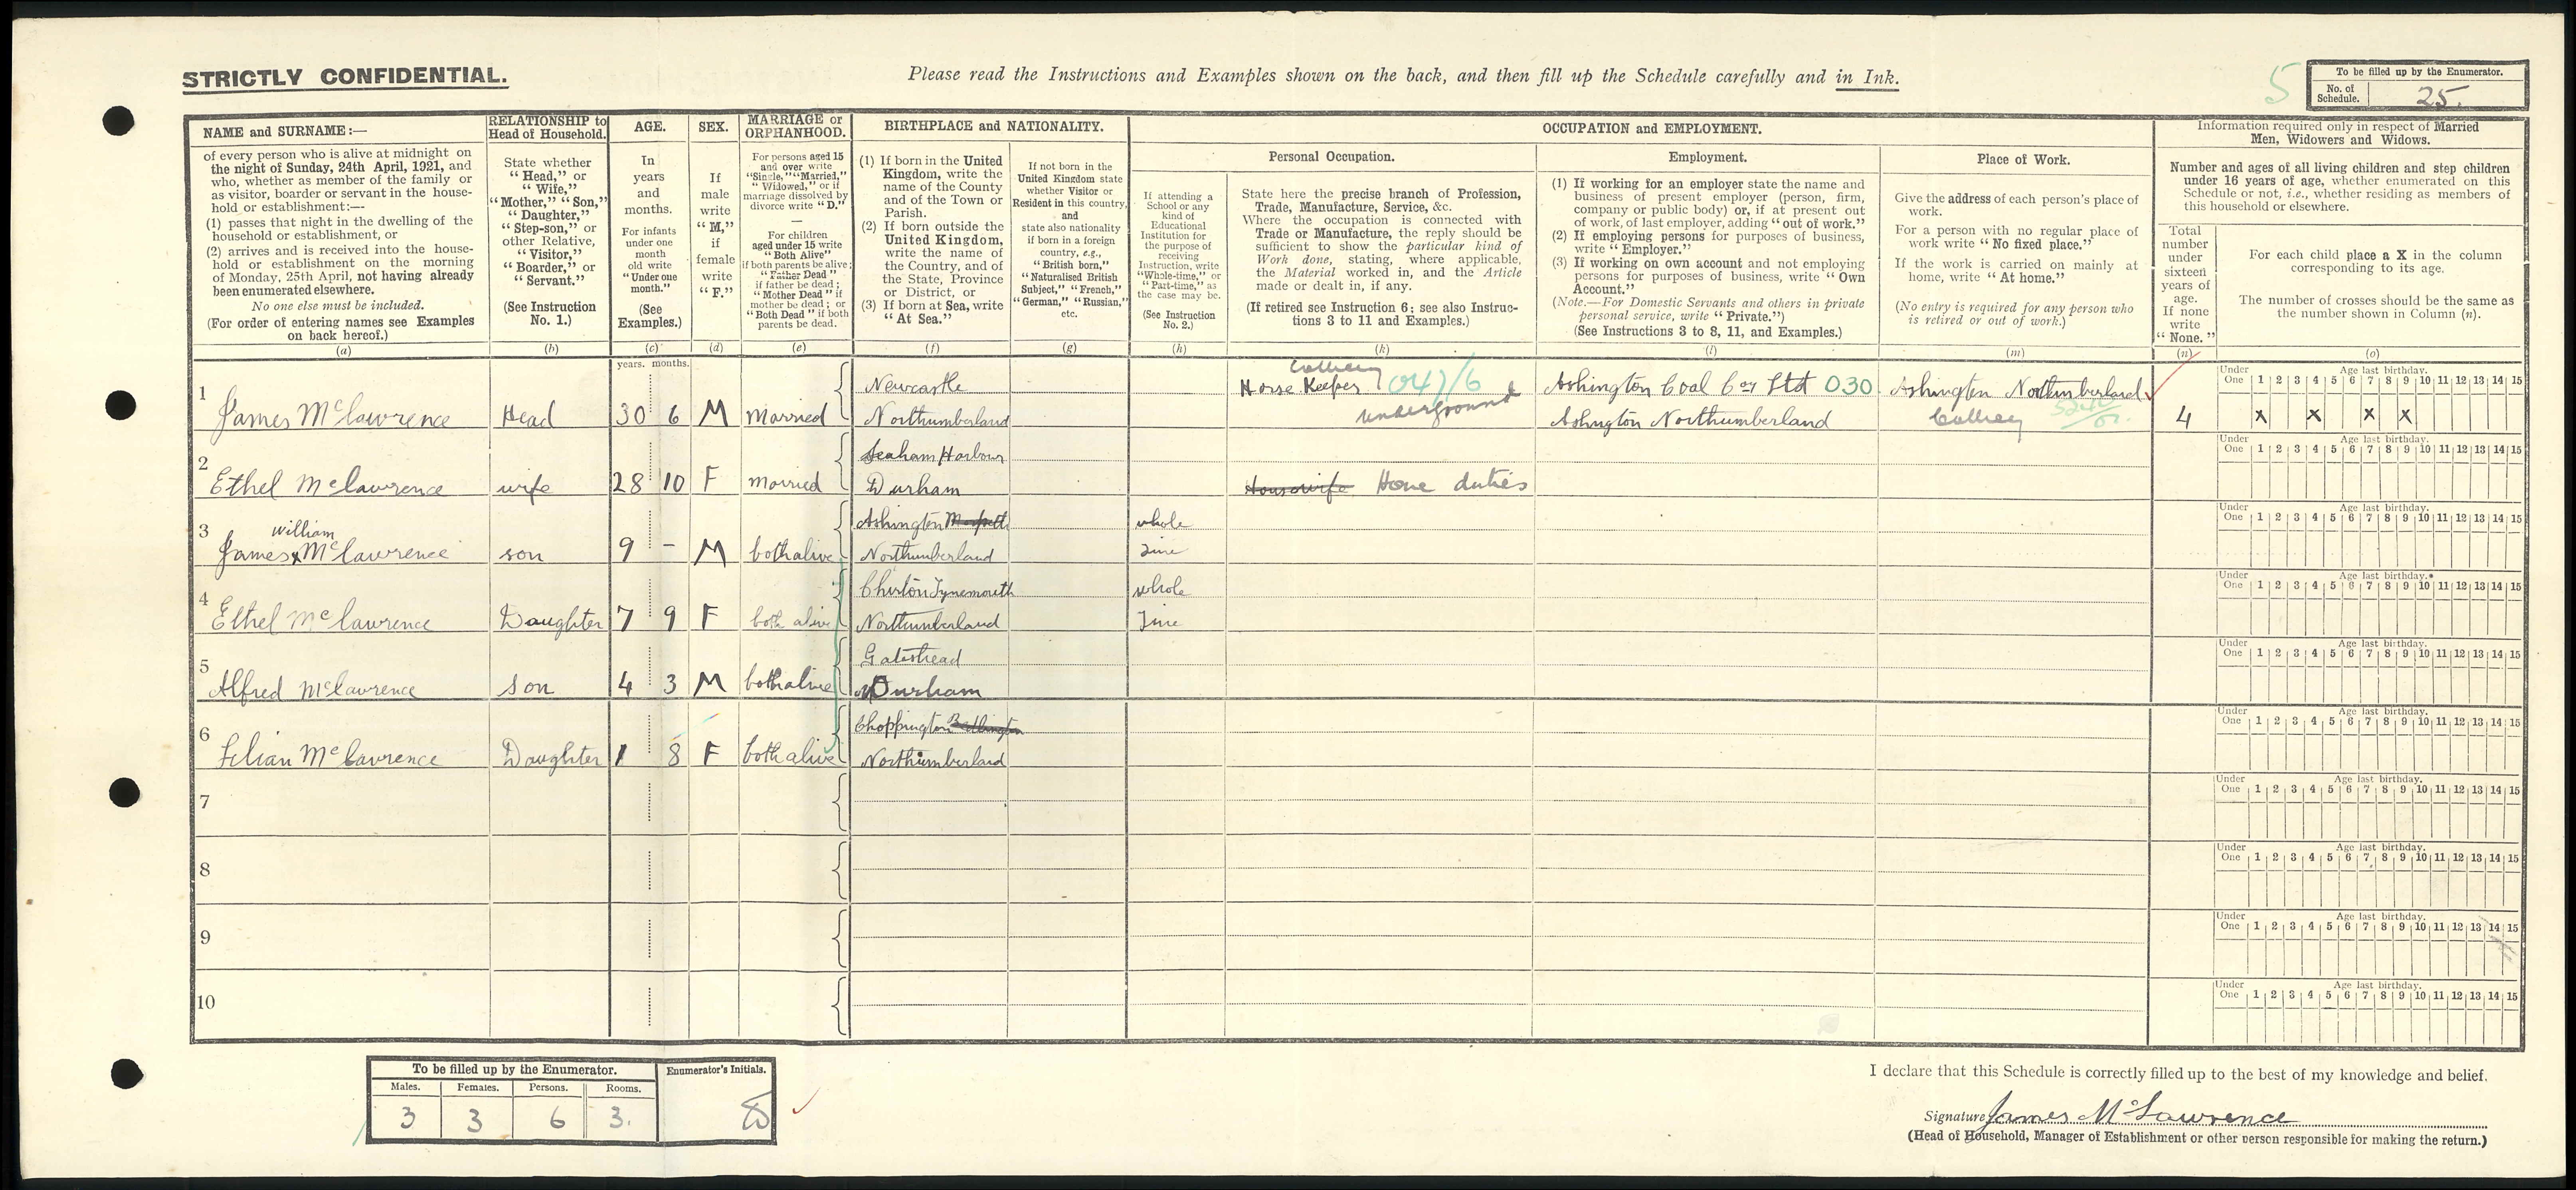 STRICTLY CONFIDENTIAL.
Please read the Instructions and Examples shown on the back, and then fill up the Schedule carefully and in Ink.
5
To be filled up by the Enumerator.
No. of Schedule. 25.
NAME and SURNAME :—
of every person who is alive at midnight on
the night of Sunday, 24th April, 1921, and
who, whether as member of the family or
as visitor, boarder or servant in the house-
hold or establishment:—
(1) passes that night in the dwelling of the
household or establishment, or
(2) arrives and is received into the house-
hold or establishment on the morning
of Monday, 25th April, not having already
been enumerated elsewhere.
No one else must be included.
(For order of entering names see Examples
on back hereof.)
(a)
RELATIONSHIP to
Head of Household.
State whether
"Head," or
"Wife,"
"Mother," "Son,"
"Daughter,"
"Step-son," or
other Relative,
"Visitor,"
"Boarder," or
"Servant."
(See Instruction
No. 1.)
(b)
AGE.
In
years
and
months.
For infants
under one
month
old write
"Under one
month."
(See
Examples.)
(c)
SEX.
If
male
write
"M,"
if
female
write
"F."
(d)
MARRIAGE or
ORPHANHOOD.
For persons aged 15
and over write
"Single," "Married,"
"Widowed," or if
marriage dissolved by
divorce write "D."
—
For children
aged under 15 write
"Both Alive"
if both parents be alive;
"Father Dead"
if father be dead;
"Mother Dead" if
mother be dead; or
"Both Dead" if both
parents be dead.
(e)
BIRTHPLACE and NATIONALITY.
(1) If born in the United
Kingdom, write the
name of the County
and of the Town or
Parish.
(2) If born outside the
United Kingdom,
write the name of
the Country, and of
the State, Province
or District, or
(3) If born at Sea, write
"At Sea."
(f)
If not born in the
United Kingdom state
whether Visitor or
Resident in this country,
and
state also nationality
if born in a foreign
country, e.g.,
"British born,"
"Naturalised British
Subject," "French,"
"German," "Russian,"
etc.
(g)
OCCUPATION and EMPLOYMENT.
If attending a
School or any
kind of
Educational
Institution for
the purpose of
receiving
Instruction, write
"Whole-time," or
"Part-time," as
the case may be.
(See Instruction
No. 2.)
(h)
Personal Occupation.
State here the precise branch of Profession,
Trade, Manufacture, Service, &c.
Where the occupation is connected with
Trade or Manufacture, the reply should be
sufficient to show the particular kind of
Work done, stating, where applicable,
the Material worked in, and the Article
made or dealt in, if any.
(If retired see Instruction 6; see also Instruc-
tions 3 to 11 and Examples.)
(k)
Employment.
(1) If working for an employer state the name and
business of present employer (person, firm,
company or public body) or, if at present out
of work, of last employer, adding "out of work."
(2) If employing persons for purposes of business,
write "Employer."
(3) If working on own account and not employing
persons for purposes of business, write "Own
Account."
(Note.—For Domestic Servants and others in private
personal service, write "Private.")
(See Instructions 3 to 8, 11, and Examples.)
(l)
Place of Work.
Give the address of each person's place of
work.
For a person with no regular place of
work write "No fixed place."
If the work is carried on mainly at
home, write "At home."
(No entry is required for any person who
is retired or out of work.)
(m)
Information required only in respect of Married
Men, Widowers and Widows.
Number and ages of all living children and step children
under 16 years of age, whether enumerated on this
Schedule or not, i.e., whether residing as members of
this household or elsewhere.
Total
number
under
sixteen
years of
age.
If none
write
"None."
(n)
For each child place a X in the column
corresponding to its age.
The number of crosses should be the same as
the number shown in Column (n).
(o)
years. months.
1
James McLawrence Head 30 6 M Married
Newcastle
Northumberland
Colliery
Horse Keeper 047/6
underground
Ashington Coal Coy Ltd 030
Ashington Northumberland
Ashington Northumberland
Colliery
4
Under One Age last birthday. 1 2 3 4 5 6 7 8 9 10 11 12 13 14 15
X X X X
2
Ethel McLawrence wife 28 10 F Married
Seaham Harbour
Durham
Housewife Home duties
Under One Age last birthday. 1 2 3 4 5 6 7 8 9 10 11 12 13 14 15
3
William
James x McLawrence son 9 - M both alive
Ashington Morpeth
Northumberland
whole
Time
Under One Age last birthday. 1 2 3 4 5 6 7 8 9 10 11 12 13 14 15
4
Ethel McLawrence Daughter 7 9 F both alive
Chirton Tynemouth
Northumberland
whole
Time
Under One Age last birthday. 1 2 3 4 5 6 7 8 9 10 11 12 13 14 15
5
Alfred McLawrence son 4 3 M both alive
Gateshead
Durham
Under One Age last birthday. 1 2 3 4 5 6 7 8 9 10 11 12 13 14 15
6
Lilian McLawrence Daughter 1 8 F both alive
Choppington Bedlington
Northumberland
Under One Age last birthday. 1 2 3 4 5 6 7 8 9 10 11 12 13 14 15
7
Under One Age last birthday. 1 2 3 4 5 6 7 8 9 10 11 12 13 14 15
8
Under One Age last birthday. 1 2 3 4 5 6 7 8 9 10 11 12 13 14 15
9
Under One Age last birthday. 1 2 3 4 5 6 7 8 9 10 11 12 13 14 15
10
Under One Age last birthday. 1 2 3 4 5 6 7 8 9 10 11 12 13 14 15
To be filled up by the Enumerator.
Males. Females. Persons. Rooms.
3 3 6 3.
Enumerator's Initials.
I declare that this Schedule is correctly filled up to the best of my knowledge and belief.
Signature James McLawrence
(Head of Household, Manager of Establishment or other person responsible for making the return.)